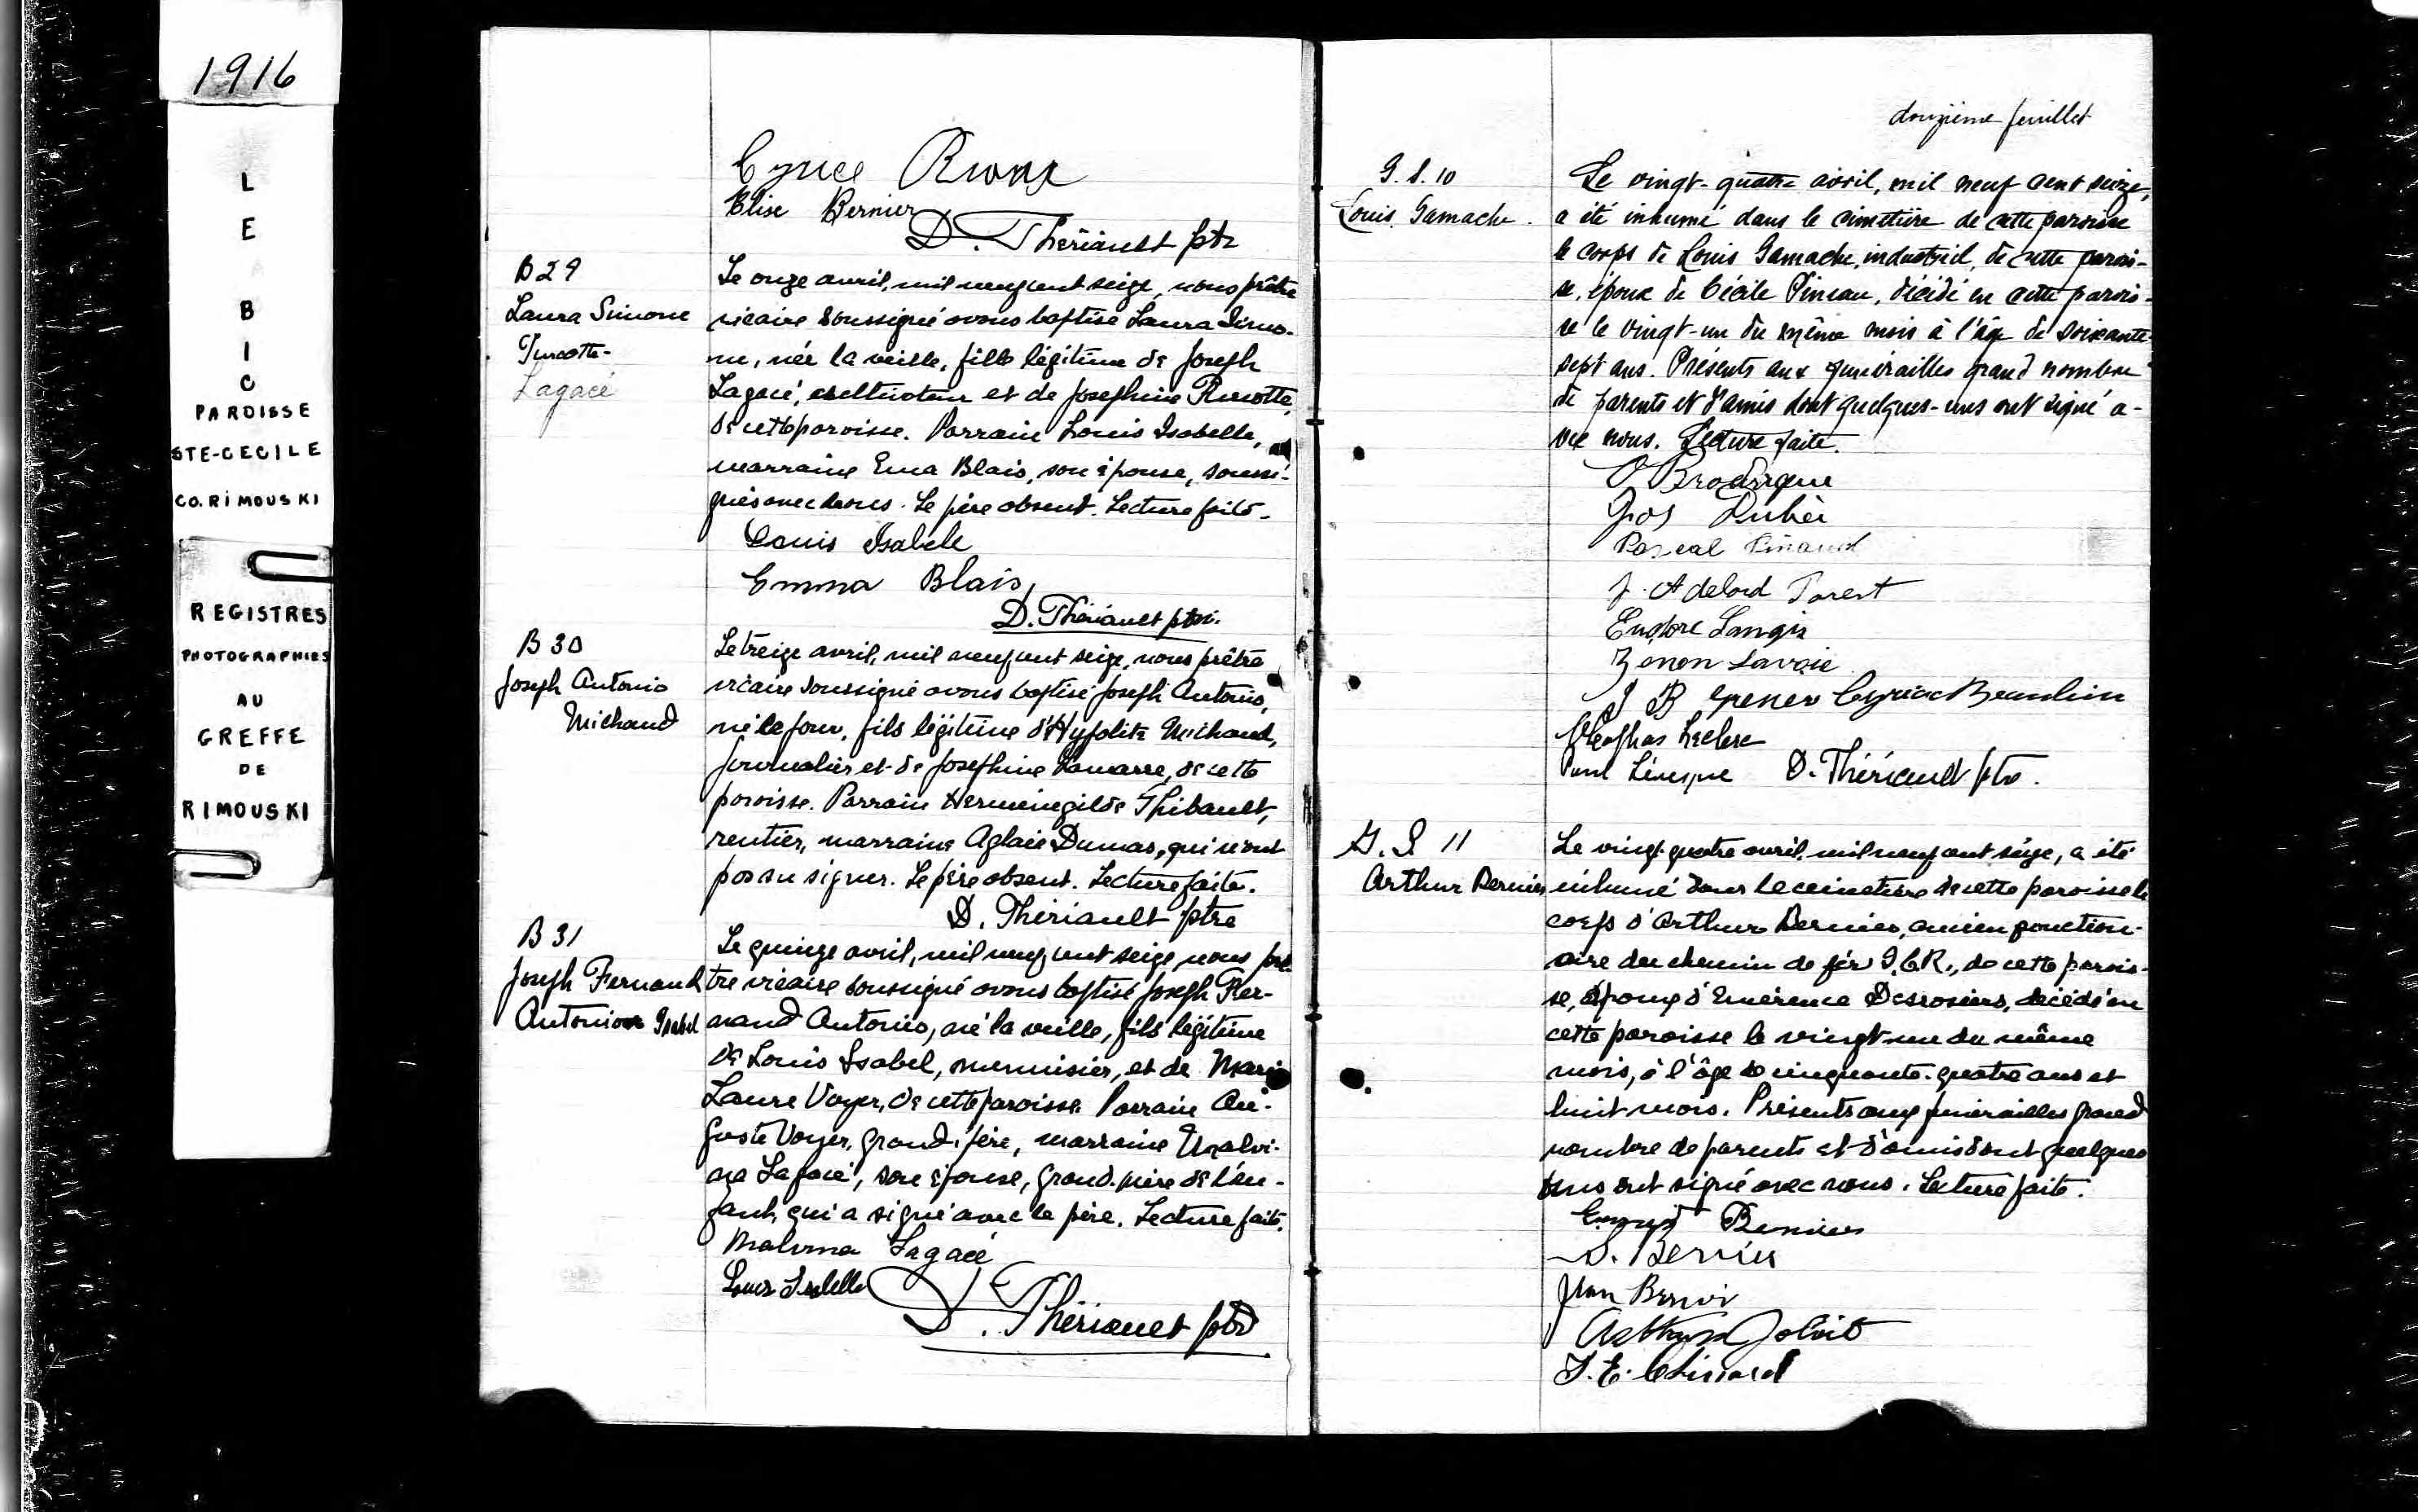 1916
L
E
B
I
C
PAROISSE
STE-CECILE
CO. RIMOUSKI
REGISTRES
PHOTOGRAPHIES
AU
GREFFE
DE
RIMOUSKI
Elise Bernier
D. Thériault ptr
B 29
Laura Simone
Turcotte-
Lagacé
Le onze avril, mil neuf cent seize, nous prêtre
vicaire soussigné avons baptisé Laura Simo-
ne, née la veille, fille légitime de Joseph
Lagacé, cultivateur et de Josephine Turcotte,
de cette paroisse. Parrain Louis Isabelle,
marraine Ema Blais, son épouse, soussi-
gnés avec nous. Le père absent. Lecture faite.
Louis Isabele
Emma Blais
D. Thériault ptre.
B 30
Joseph Antonio
Michaud
Le treize avril, mil neuf cent seize, nous prêtre
vicaire soussigné avons baptisé Joseph Antonio,
né le jour, fils légitime d'Hypolite Michaud,
journalier et de Josephine, de cette
paroisse. Parrain Herménégilde Thibault,
rentier, marraine Aglaée Dumas, qui n'ont
pas su signer. Le père absent. Lecture faite.
D. Thériault ptre
B 31
Joseph Fernand
Antonio Isabel
Le quinze avril, mil neuf cent seize nous prê-
tre vicaire soussigné avons baptisé Joseph Fer-
nand Antonio, né la veille, fils légitime
de Louis Isabel, menuisier, et de Marie
Laure Voyer, de cette paroisse. Parrain Au-
guste Voyer, grand-père, marraine Malvi-
na Lagacé, son épouse, grand-mère de l'en-
fant, qui a signé avec le père. Lecture faite.
Malvina Lagacé
Louis Isabelle
D. Thériault ptre
douzième feuillet
G. S. 10
Louis Gamache
Le vingt-quatre avril, mil neuf cent seize,
a été inhumé dans le cimetière de cette paroisse
le corps de Louis Gamache, industriel, de cette parois-
se, époux de Cécile Pineau, décédé en cette parois-
se le vingt-un du même mois à l'âge de soixante
sept ans. Présents aux funérailles grand nombre
de parents et d'amis dont quelques-uns ont signé a-
vec nous. Lecture faite.
Jos
Pascal Pinaud
J. Adelard Parent
Eudore Langis
Zénon Lavoie
J B Cyriac Beaulieu
Cléophas Leclerc
Paul Lévesque D. Thériault ptre.
G. S 11
Arthur Bernier
Le vingt-quatre avril, mil neuf cent seize, a été
inhumé dans le cimetière de cette paroisse le
corps d'Arthur Bernier, ancien fonction-
aire du chemin de fer I.C.R., de cette parois-
se, époux d'Emérence Desrosiers, décédé en
cette paroisse le vingt-un du même
mois, à l'âge de cinquante-quatre ans et
huit mois. Présents aux funérailles grand
nombre de parents et d'amis dont quelques
uns ont signé avec nous. Lecture faite.
Ernest Bernier
D. Bernier
Jean Bernier
Arthur
J. E. Chinard